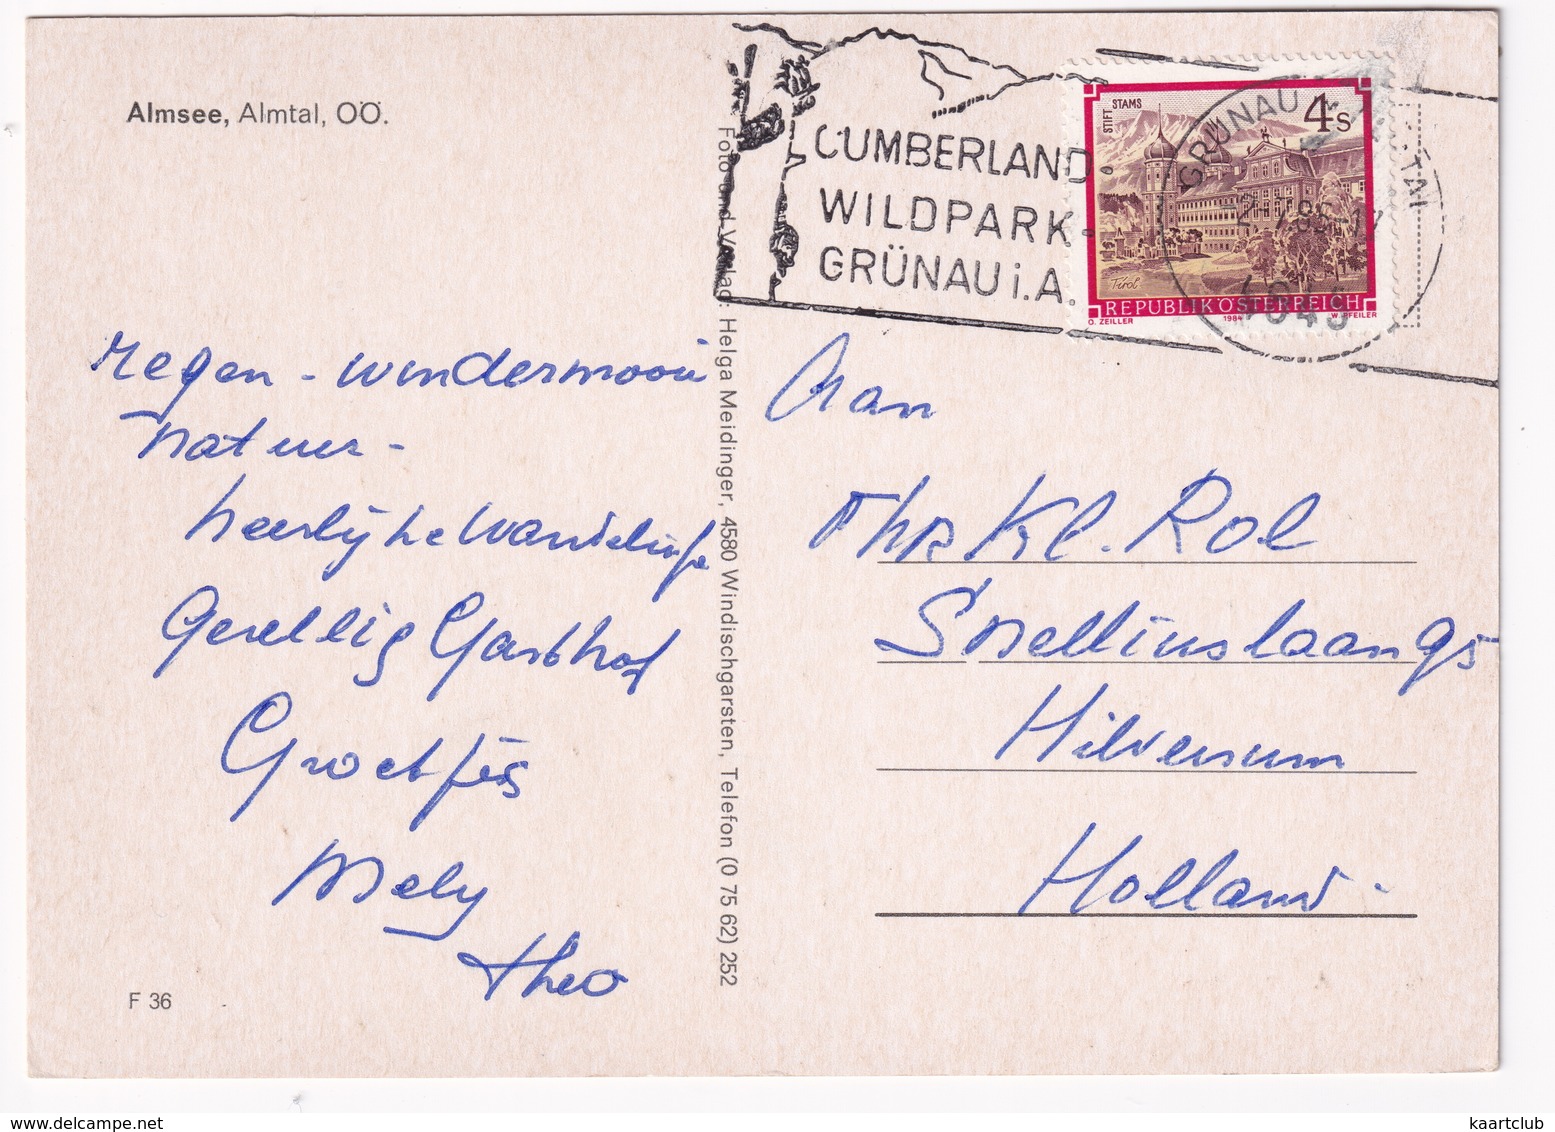 Almsee, Almtal, OÖ.
CUMBERLAND-
WILDPARK-
GRÜNAU i.A.
STIFT STAMS
4s
Tirol
REPUBLIK ÖSTERREICH
O. ZEILLER 1984 W. PFEILER
GRÜNAU
4645
regen - wondermooie
natuur -
heerlijke wandelingen
Gezellig Gasthof
Groetjes
Mely
Theo
Foto und Verlag: Helga Meidinger, 4580 Windischgarsten, Telefon (0 75 62) 252
Aan
Fam Kl. Rol
Snelliuslaan 95
Hilversum
Holland.
F 36
www.delcampe.net
kaartclub